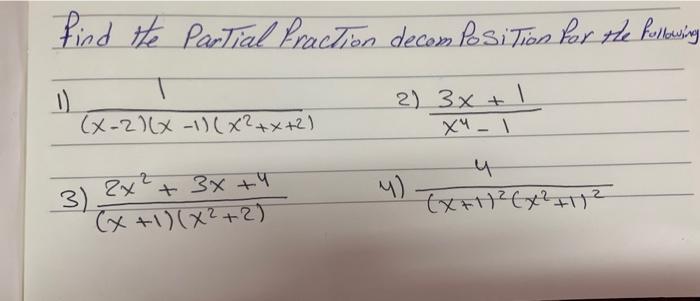 find the Partial fraction decomPosiTion for the following
1) 1/((x-2)(x-1)(x²+x+2)) 2) (3x+1)/(x⁴-1)
3) (2x²+3x+4)/((x+1)(x²+2)) 4) 4/((x+1)²(x²+1)²)